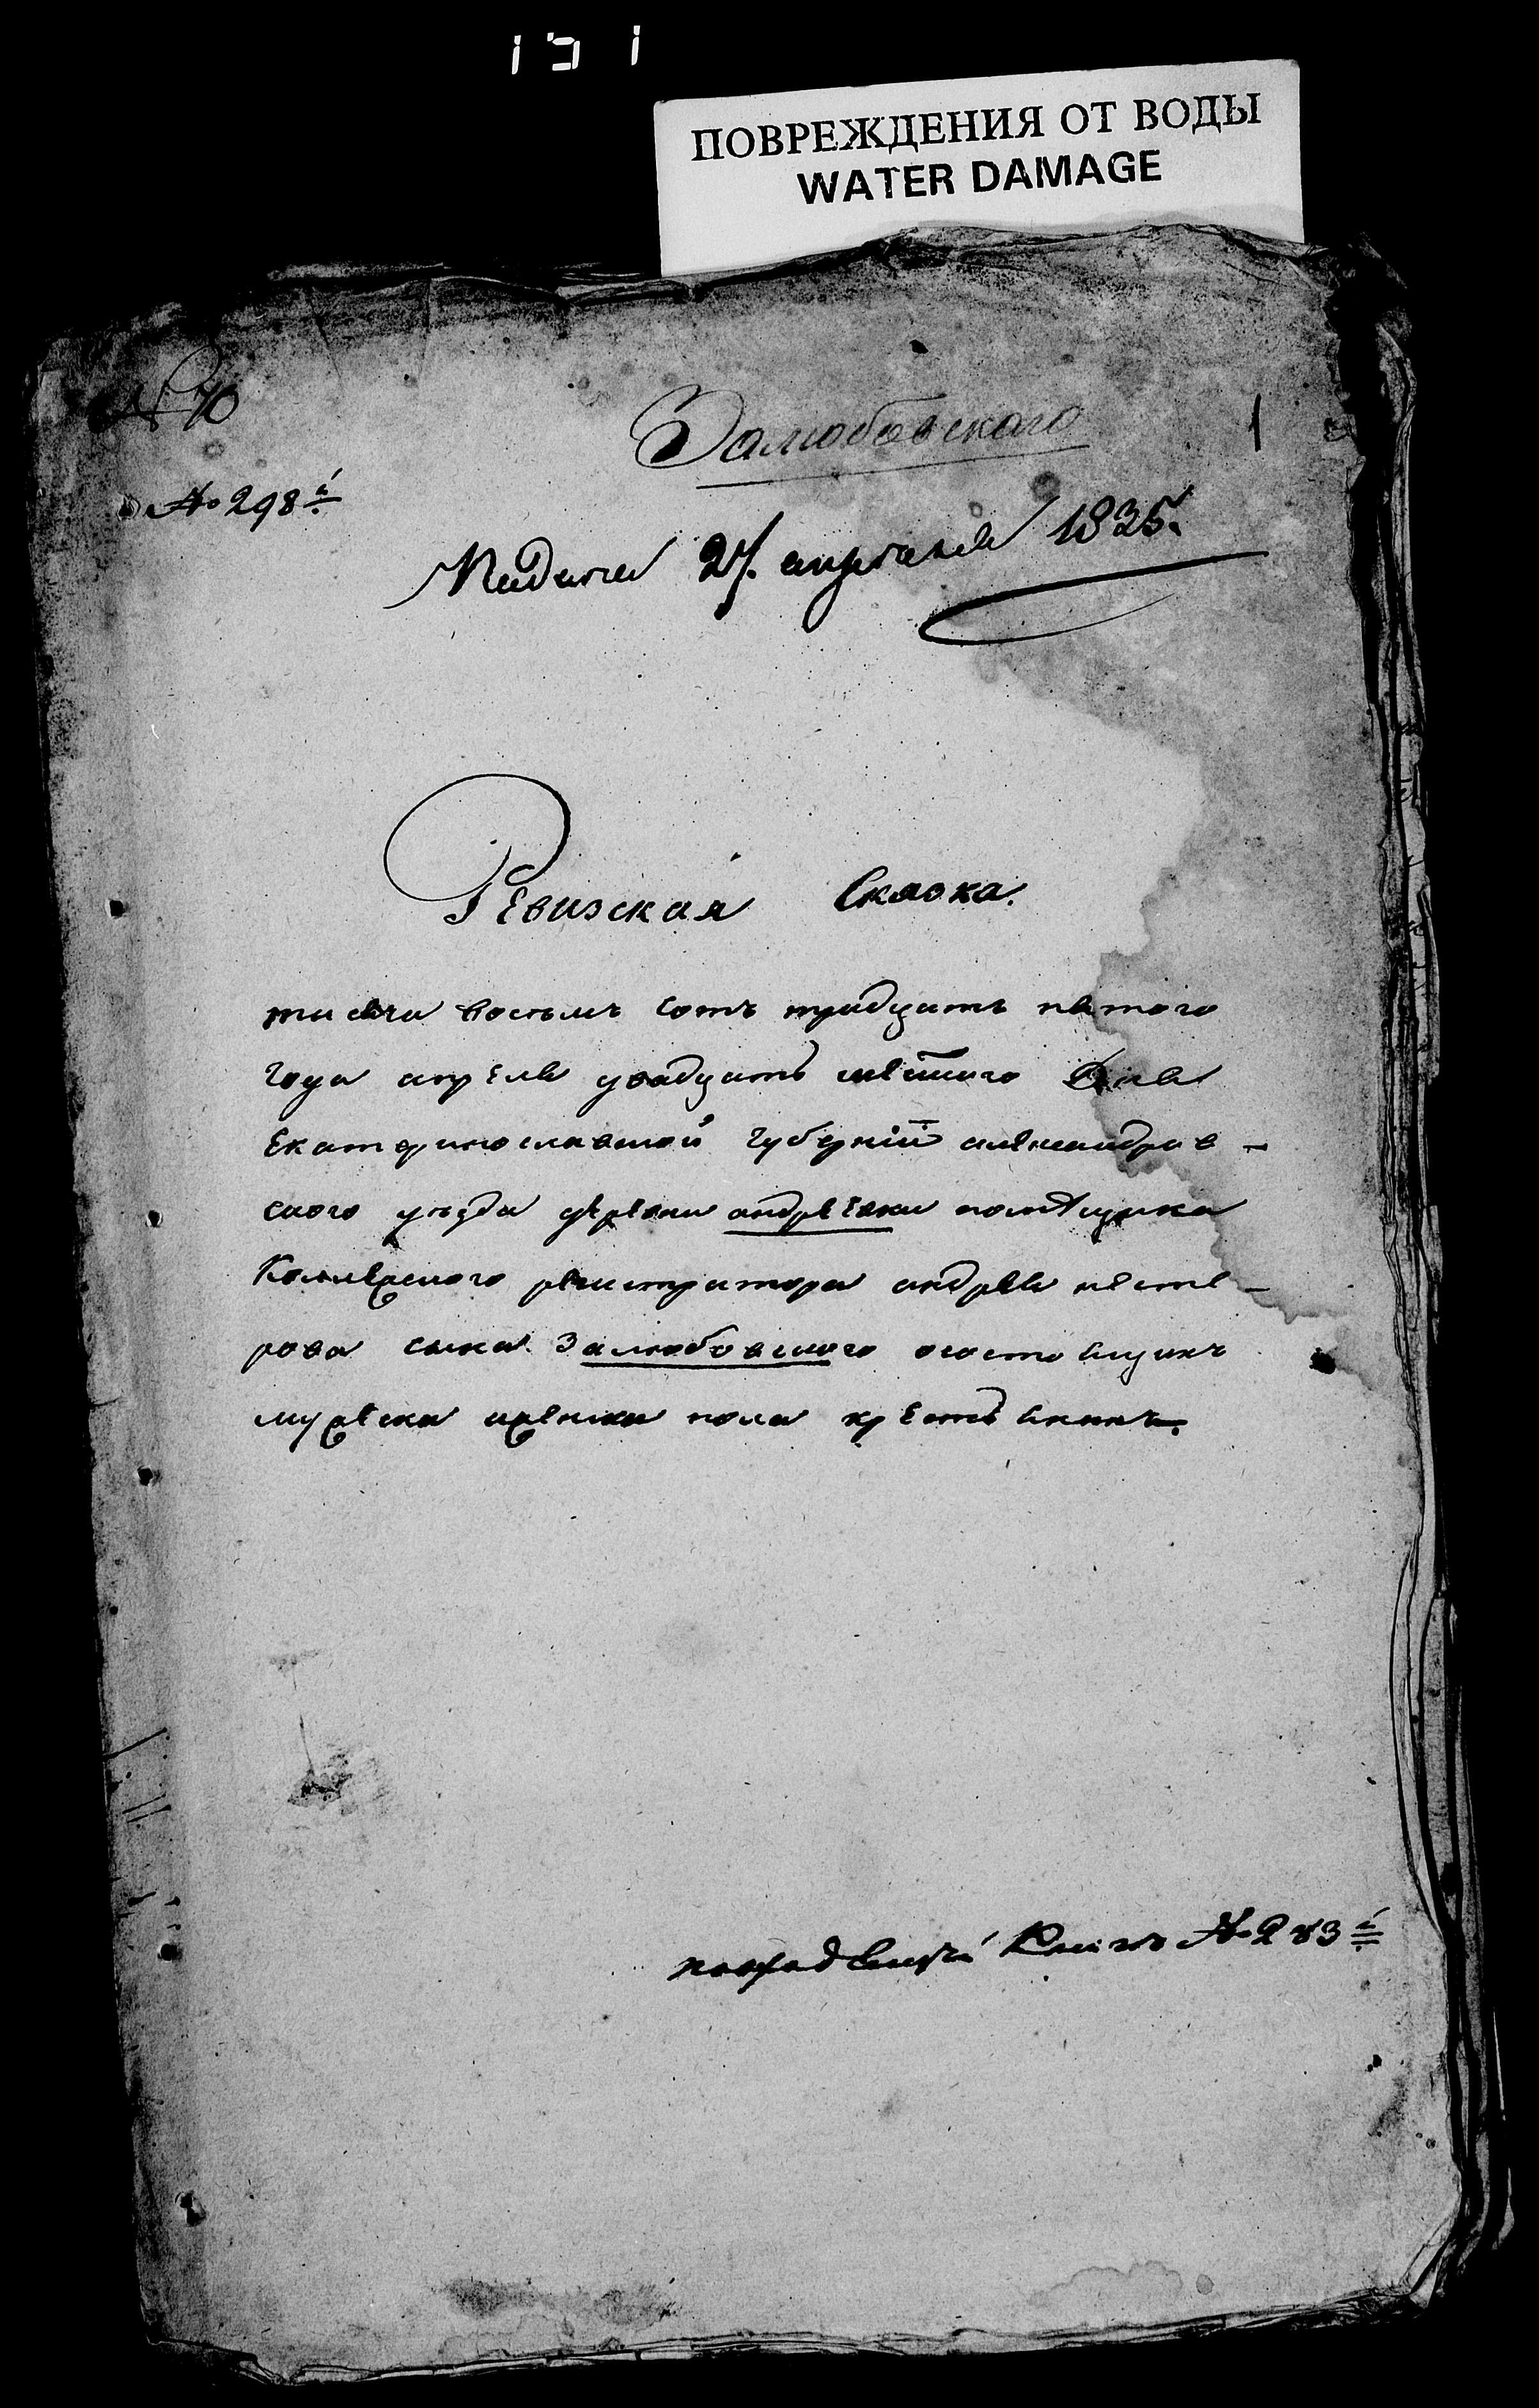 ПОВРЕЖДЕНИЯ ОТ ВОДЫ
WATER DAMAGE
№ 70
Залюбовскаго
1
№ 298й
Подана 27. апреля 1835.
Ревизская Сказка.
тисяча восемъ сотъ тридцять пятого
года апреля двадцять шестого дня
Екатеринославской губернии александров-
ского уезда деревни андреевки помещика
Колежского регистратора андрея несте-
рова сына Залюбовского о состоящихъ
мужеска и женска пола крестьянахъ.
№ 283й